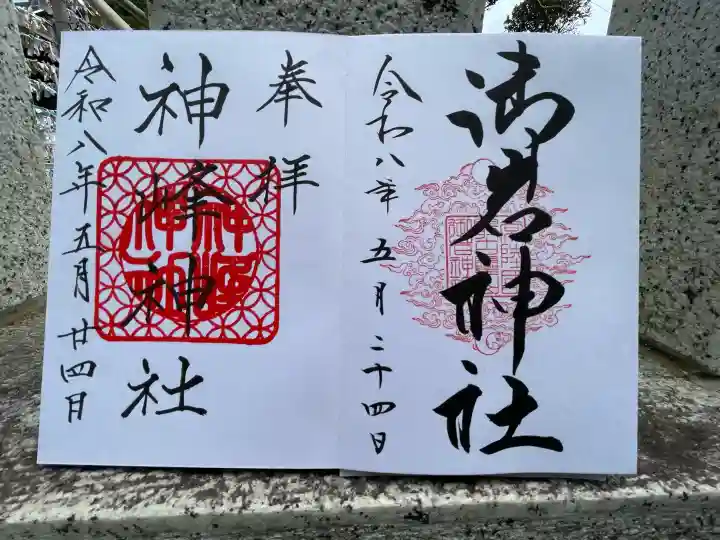 御岩神社
令和八年 五月 二十四日
奉拝
神峰神社
令和八年五月廿四日